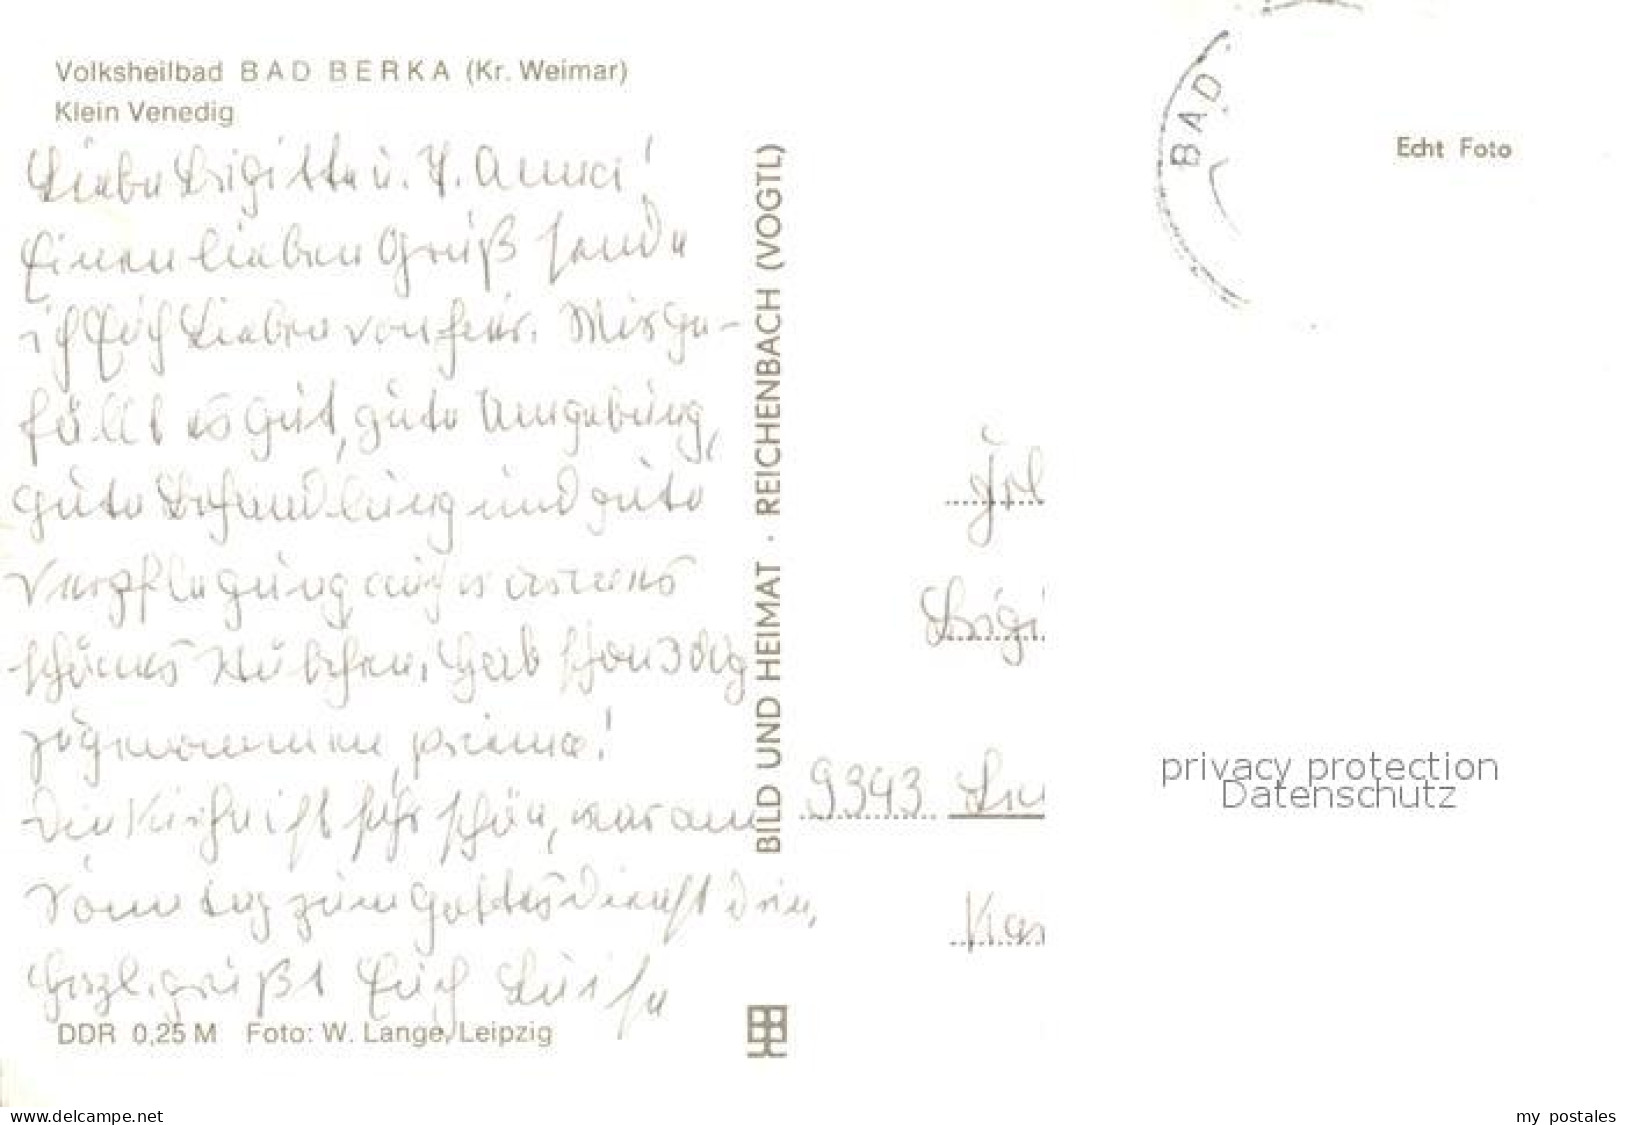 Volksheilbad BAD BERKA (Kr. Weimar)
Klein Venedig
Liebe Brigitte u. H. Anna!
Einen lieben Gruß sende
ich Euch Lieben von hier. Mir ge-
fällt es gut, gute Umgebung,
gute Behandlung und gute
Verpflegung auch
schönes Stübchen. Hab schon 3 kg
zugenommen, prima!
Die sehr schön, war am
Sonntag zum Gottesdienst drin,
Herzl. grüßt Euch Luise
DDR 0,25 M Foto: W. Lange, Leipzig
BILD UND HEIMAT · REICHENBACH (VOGTL)
BAD
Echt Foto
Brigi
9343
privacy protection
Datenschutz
www.delcampe.net
my postales